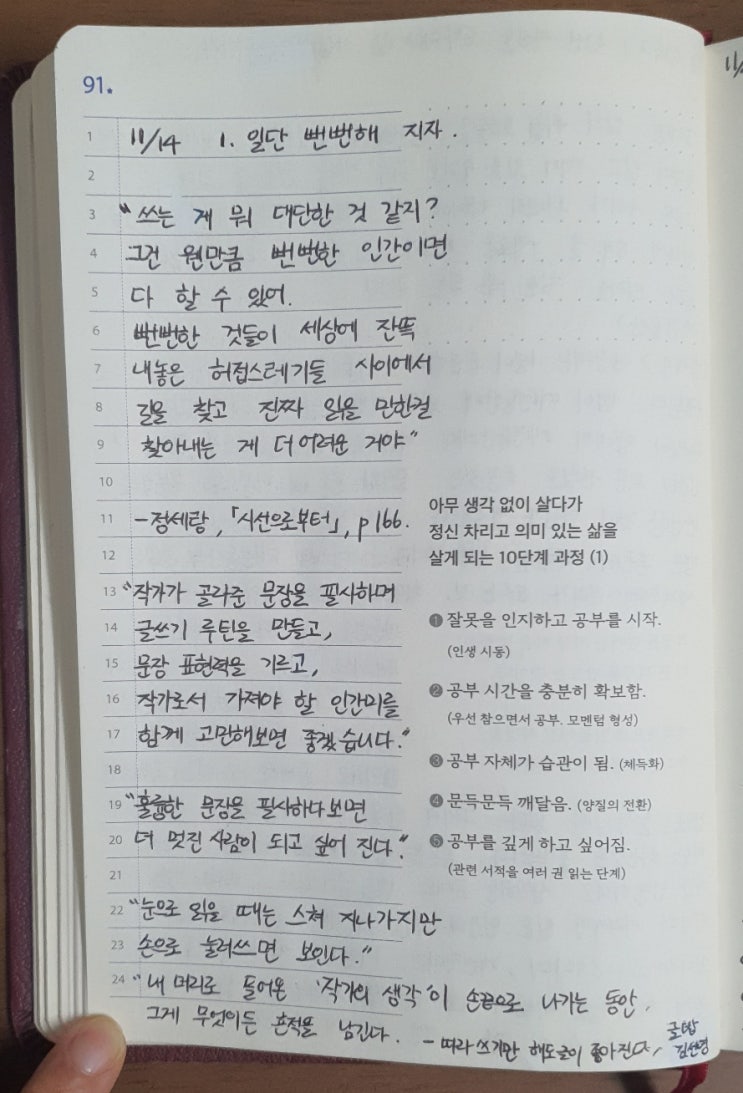 91.
1 11/14 1. 일단 뻔뻔해 지자.
2
3 "쓰는 게 뭐 대단한 것 같지?
4 그건 웬만큼 뻔뻔한 인간이면
5 다 할 수 있어.
6 뻔뻔한 것들이 세상에 잔뜩
7 내놓은 허접스레기들 사이에서
8 길을 찾고 진짜 읽을 만한걸
9 찾아내는 게 더 어려운 거야"
10
11 -정세랑, 「시선으로부터」, p166.
12
13 "작가가 골라준 문장을 필사하며
14 글쓰기 루틴을 만들고,
15 문장 표현력을 기르고,
16 작가로서 가져야 할 인간미를
17 함께 고민해보면 좋겠습니다."
18
19 "훌륭한 문장을 필사하다보면
20 더 멋진 사람이 되고 싶어 진다."
21
22 "눈으로 읽을 때는 스쳐 지나가지만
23 손으로 눌러쓰면 보인다."
24 "내 머리로 들어온 '작가의 생각'이 손끝으로 나가는 동안,
그게 무엇이든 흔적을 남긴다. - 따라 쓰기만 해도글이 좋아진다, 글밥
김선영
아무 생각 없이 살다가
정신 차리고 의미 있는 삶을
살게 되는 10단계 과정 (1)
❶ 잘못을 인지하고 공부를 시작.
(인생 시동)
❷ 공부 시간을 충분히 확보함.
(우선 참으면서 공부. 모멘텀 형성)
❸ 공부 자체가 습관이 됨. (체득화)
❹ 문득문득 깨달음. (양질의 전환)
❺ 공부를 깊게 하고 싶어짐.
(관련 서적을 여러 권 읽는 단계)